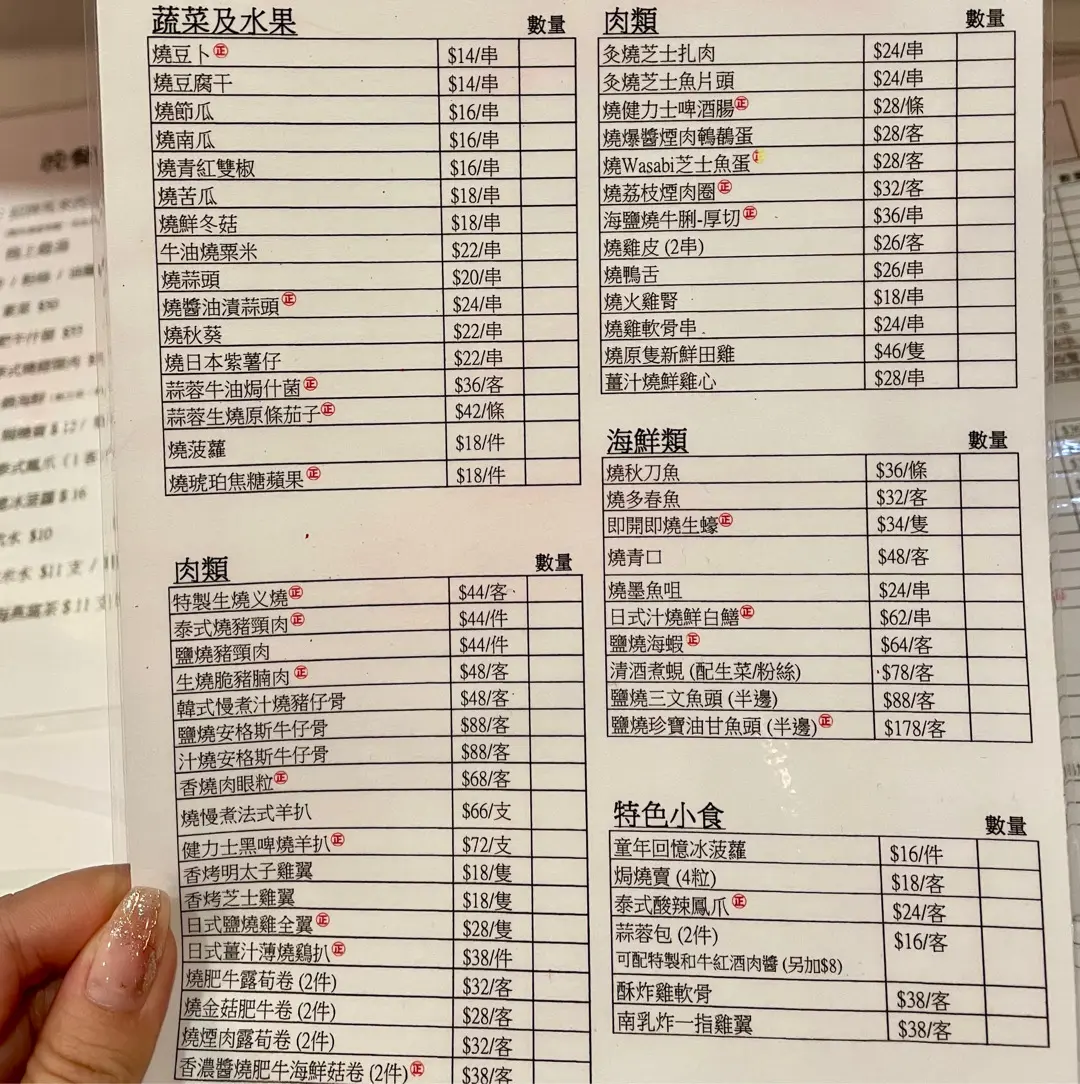 蔬菜及水果 數量
燒豆卜㊣ $14/串
燒豆腐干 $14/串
燒節瓜 $16/串
燒南瓜 $16/串
燒青紅雙椒 $16/串
燒苦瓜 $18/串
燒鮮冬菇 $18/串
牛油燒粟米 $22/串
燒蒜頭 $20/串
燒醬油漬蒜頭㊣ $24/串
燒秋葵 $22/串
燒日本紫薯仔 $22/串
蒜蓉牛油焗什菌㊣ $36/客
蒜蓉生燒原條茄子㊣ $42/條
燒菠蘿 $18/件
燒琥珀焦糖蘋果㊣ $18/件
肉類 數量
特製生燒义燒㊣ $44/客
泰式燒豬頸肉㊣ $44/件
鹽燒豬頸肉 $44/件
生燒脆豬腩肉㊣ $48/客
韓式慢煮汁燒豬仔骨 $48/客
鹽燒安格斯牛仔骨 $88/客
汁燒安格斯牛仔骨 $88/客
香燒肉眼粒㊣ $68/客
燒慢煮法式羊扒 $66/支
健力士黑啤燒羊扒㊣ $72/支
香烤明太子雞翼 $18/隻
香烤芝士雞翼 $18/隻
日式鹽燒雞全翼㊣ $28/隻
日式薑汁薄燒鷄扒㊣ $38/件
燒肥牛露荀卷 (2件) $32/客
燒金菇肥牛卷 (2件) $28/客
燒煙肉露荀卷 (2件) $32/客
香濃醬燒肥牛海鮮菇卷 (2件)㊣ $38/客
肉類 數量
炙燒芝士扎肉 $24/串
炙燒芝士魚片頭 $24/串
燒健力士啤酒腸㊣ $28/條
燒爆醬煙肉鵪鶉蛋 $28/客
燒Wasabi芝士魚蛋 $28/客
燒荔枝煙肉圈㊣ $32/客
海鹽燒牛脷-厚切㊣ $36/串
燒雞皮 (2串) $26/客
燒鴨舌 $26/串
燒火雞腎 $18/串
燒雞軟骨串 $24/串
燒原隻新鮮田雞 $46/隻
薑汁燒鮮雞心 $28/串
海鮮類 數量
燒秋刀魚 $36/條
燒多春魚 $32/客
即開即燒生蠔㊣ $34/隻
燒青口 $48/客
燒墨魚咀 $24/串
日式汁燒鮮白鱔㊣ $62/串
鹽燒海蝦㊣ $64/客
清酒煮蜆 (配生菜/粉絲) $78/客
鹽燒三文魚頭 (半邊) $88/客
鹽燒珍寶油甘魚頭 (半邊)㊣ $178/客
特色小食 數量
童年回憶冰菠蘿 $16/件
焗燒賣 (4粒) $18/客
泰式酸辣鳳爪㊣ $24/客
蒜蓉包 (2件) $16/客
可配特製和牛紅酒肉醬 (另加$8)
酥炸雞軟骨 $38/客
南乳炸一指雞翼 $38/客